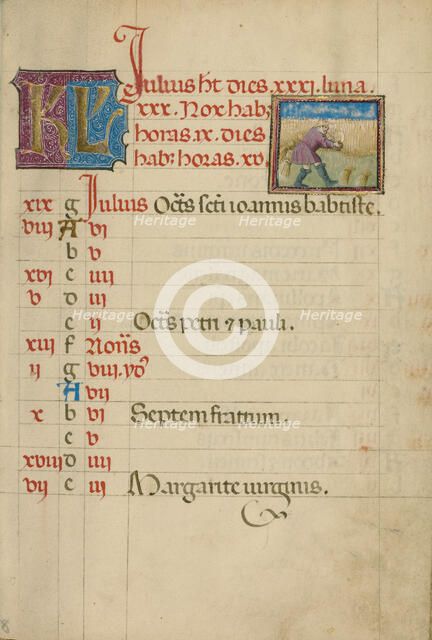 KL Iulius ht dies xxxi. luna.
xxx. Nox hab;
horas. ix. dies
hab; horas. xv.
xix g Iulius Octs scti ioannis babtiste.
viii A vi
b v
xvi c iiii
v d iii
e ii Octs petri ⁊ pauli.
xiii f Nons
ii g viii. yds
A vii
x b vi Septem fratrum.
c v
xviii d iiii
vii e iii Margarite uirginis.
Heritage Heritage
Heritage Heritage
Heritage Heritage
8